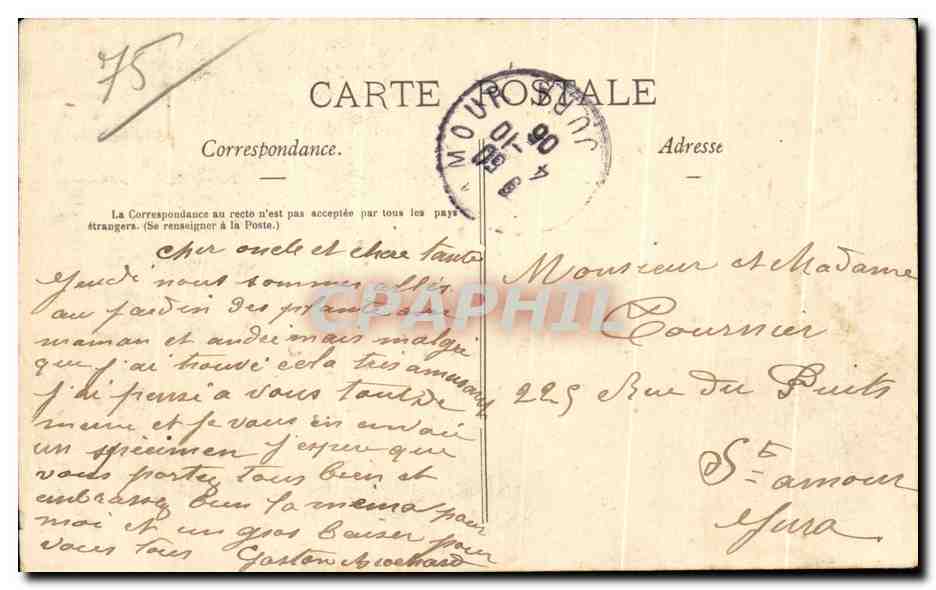 75
CARTE POSTALE
Correspondance.
Adresse
MOUR JURA
10 - 10
4 06
La Correspondance au recto n'est pas acceptée par tous les pays
étrangers. (Se renseigner à la Poste.)
cher oncle et chere tante
Jeudi nous sommes allés
au jardin des plantes avec
maman et andré mais malgré
que j'ai trouvé cela très amusant
j'ai pensé a vous tout de
meme et je vous en envoie
un spécimen j'espère que
vous portez tous bien et
embrassez bien la mema pour
moi et un gros baiser pour
vous tous Gaston
Monsieur et Madame
Tournier
225 Rue du Puits
St amour
Jura
CPAPHIL